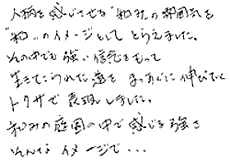 人柄を感じさせる"和みの雰囲気を
"和い"のイメージとしてとらえました。
その中でも強い信念をもって
生きてこられた道をまっすぐに伸びゆく
トクサで表現しました。
和みの庭園の中で感じる強さ
そんなイメージで・・・